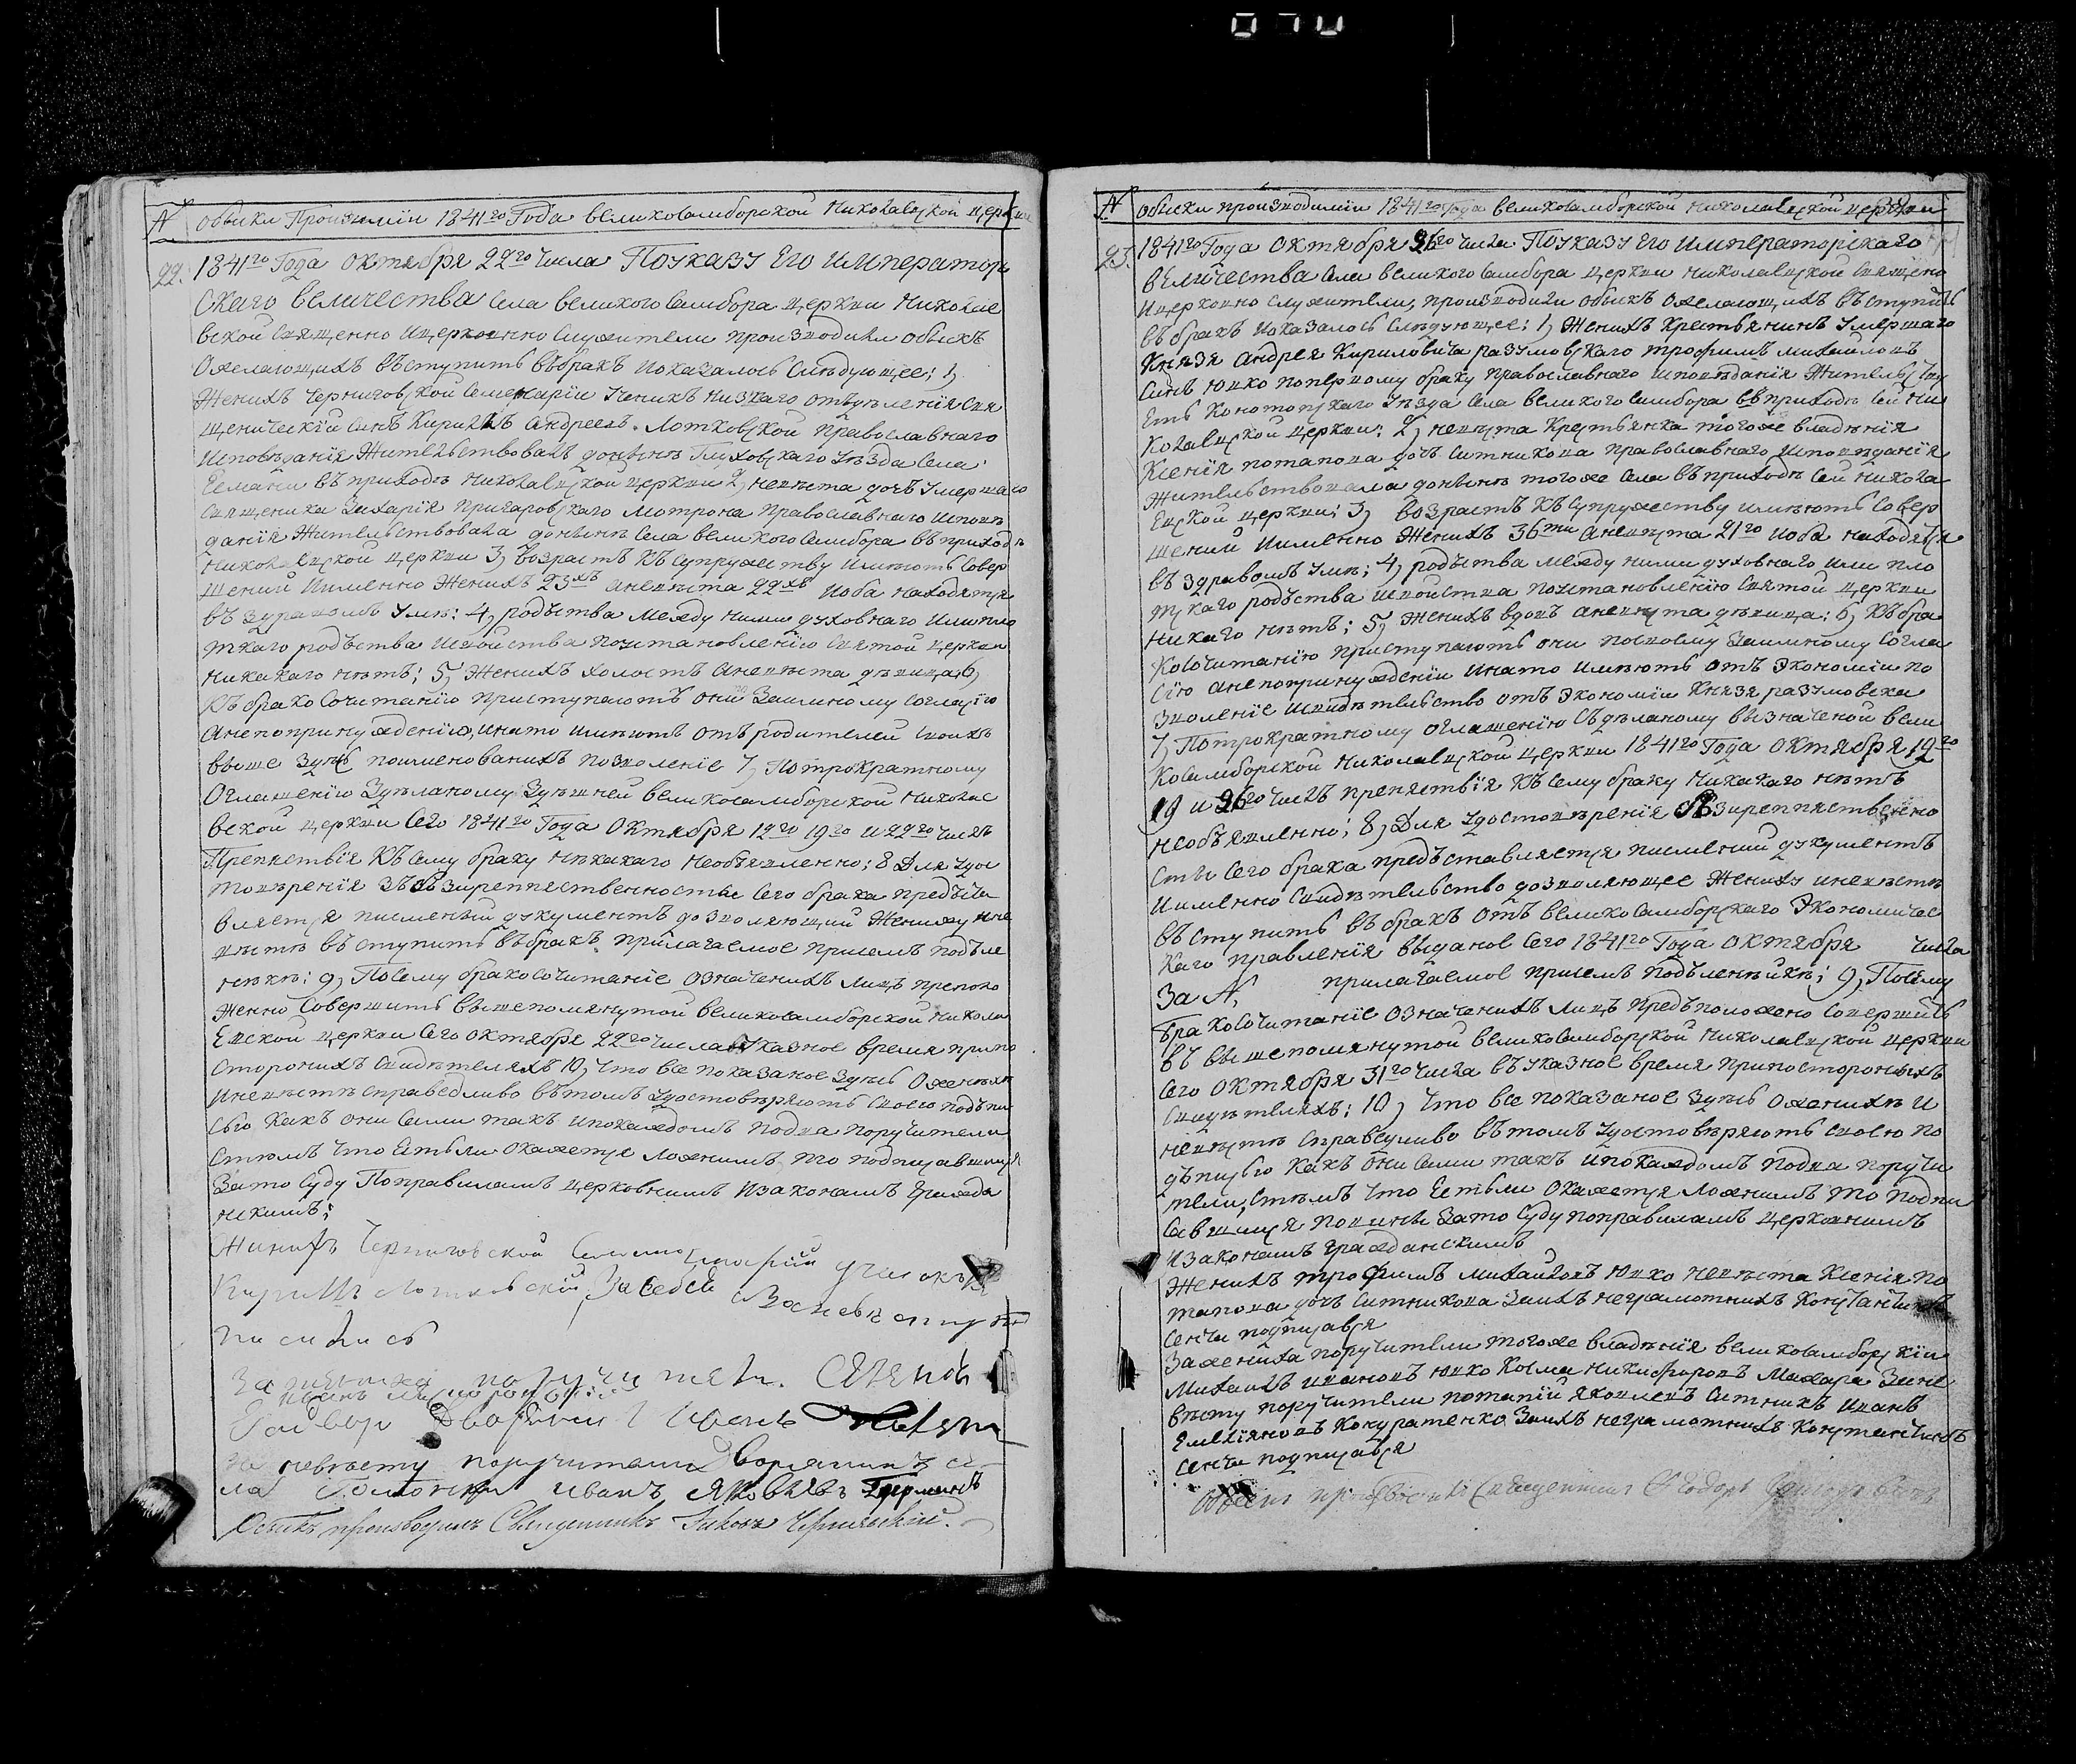 № Обыски Произшлiи 1841го Года великосамборской Николаевской церкви
22. 1841го Года Октября 22го Числа По указу Его Императорс
Скаго величества села великого самбора церкви Николае
вской священно и церковно служители производили обыскъ
О желающихъ въступить въ бракъ показалось Слѣдующее: 1,
Женихъ Черниговской Семенарiи Ученикъ низкаго отѣделенiя свя
щеническiй синъ Кирилъ Андреевъ Лотковской православнаго
Исповѣданiя Жительствовалъ донынѣ Глуховскаго уѣзда села
Есмани въ приходѣ Николаевской церкви 2, невѣста дочь умершаго
священика Захарiя Пригаровскаго Мотрона православнаго исповѣ
данiя Жительствовала донынѣ села великого самбора въ приходѣ
Николаевской церкви 3, возрастъ къ супружеству имѣютъ совер
шений именно Женихъ 23хъ а невѣста 22хъ и оба находятся
въ здравомъ умѣ: 4, родъства между ними духовнаго или пло
тскаго родъства и свойства по установленiю святой церкви
никакаго нѣтъ; 5, Женихъ холостъ а невѣста дѣвица; 6,
Къ бракосочитанiю приступаютъ они взаимному согласiю
А не по принужденiю, и на то имѣютъ отъ родителей своихъ
выше здѣсь поименованихъ позволенiе 7, По трократному
Оглашенiю здѣланому здѣшней великосамборской Николае
вской церкви сего 1841го Года Октября 12го 19го и 22го числъ
Препятствiя къ сему браку нѣкакаго необъявленно; 8 Для удос
товѣренiя безпрепятственностьи сего брака предъста
вляется писменый документъ дозволяющий Жениху и не
вѣстѣ въступить въ бракъ прилагаемое при семъ подъле
ннѣкѣ: 9, По сему бракосочитанiе означенихъ лицъ предполо
женно совершить вышепомянутой великосамборской Никола
Евской церкви сего Октября 22го числа указное время при по
сторонихъ свидѣтеляхъ 10, Что все показаное здѣсь о женихѣ
и невѣстѣ справедливо въ томъ удостовѣряютъ своею подъпи
сью какъ они сами такъ и по каждомъ подва поручители
стѣмъ что естьли окажется ложнимъ то подписавшиися
за то суду По правиламъ церковнимъ и законамъ гражда
нскимъ;
Жинихъ Черниговской Семинарiи ученикъ
Кирилъ Лотковскiй за себе и за невѣсту
писились
за жениха поручители
Дворянин
за невѣсту поручители Дворянинъ се
ла Иванъ Яковлѣвъ
Обыскъ производилъ Священникъ Яковъ
№ Обыски произшодимiи 1841го Года великосамборской Николаевской церкви
23. 1841го Года Октября 26го числа По указу Его Императорскаго
величества села великого самбора церкви Николаевской священо
и церковно служители, производили обыскъ о желающихъ въступить
въ бракъ и оказалось слѣдующее: 1, Женихъ Крестьянинъ умершаго
Князя Андрея Кириловича разумовскаго Трофимъ Михайловъ
синъ Юнко по первому браку православнаго исповѣданiя жительству
Етъ Конотопскаго уѣзда села великого самбора въ приходѣ сей Ни
колаевской церкви: 2, невѣста Крестьянка того же владѣнiя
Ксенiя потапова дочь ситникова православнаго исповѣданiя
Жительствовала донынѣ того же села въ приходѣ сей Никола
Евской церкви; 3, возрастъ къ супружеству имѣютъ совер
шений именно Женихъ 36ти а невѣста 21го и оба находятся
въ здравомъ умѣ; 4, родъства между ними духовнаго или пло
тскаго родъства и свойства по установленiю святой церкви
никаго нѣтъ; 5, Женихъ вдовъ а невѣста дѣвица: 6, къ бра
косочитанiю приступаютъ они по своему взаимному согла
сiю а не по принужденiи и на то имѣютъ отъ Экономiи по
зволенiе и свидѣтельство отъ Экономiи Князя разумовска
7, По трократному оглашенiю съдѣланому вызначеной вели
косамборской Николаевской церкви 1841го Года Октября 12го
19 и 26го числъ препяствiя къ сему браку никакаго нѣтъ
необъявленно; 8, Для удостовѣренiя безпрепяственно
сти сего брака предъставляется писмений документъ
именно свидѣтельство дозволяющее жениху и невѣстѣ
въступить въ бракъ отъ великосамборскаго Экономичес
каго правленiя выданое сего 1841го Года Октября числа
за №, прилагаемое при семъ подъленѣикѣ; 9, По сему
бракосочитанiе означенихъ лицъ предъположено совершить
въ вышепомянутой великосамборской Николаевской церкви
сего Октября 31го числа въ указное время при посторонихъ
свидѣтеляхъ: 10, что все показаное здѣсь о женихѣ и
невѣстѣ справедливо въ томъ удостовѣряютъ своею по
дъписью какъ они сами такъ и по каждомъ подва поручи
тели, стѣмъ что естьли окажется ложнимъ то подпи
савшиися повины за то суду по правиламъ церковнимъ
и законамъ гражданскимъ
Женихъ Трофимъ Михайловъ Юнко невѣста Ксенiя по
тапова дочь ситникова за ихъ неграмотнихъ Констанътинъ
сенчи подписався
За жениха поручители того же владѣнiя великосамборскiи
Михаилъ ивановъ Юнко Косма никифоровъ Махара За не
вѣсту поручители потапiй яковлевъ ситникъ иванъ
Емелiяновъ Кондратенко за ихъ неграмотнихъ Констанътинъ
сенчи подписався
Обыскъ производилъ священникъ Феодоръ